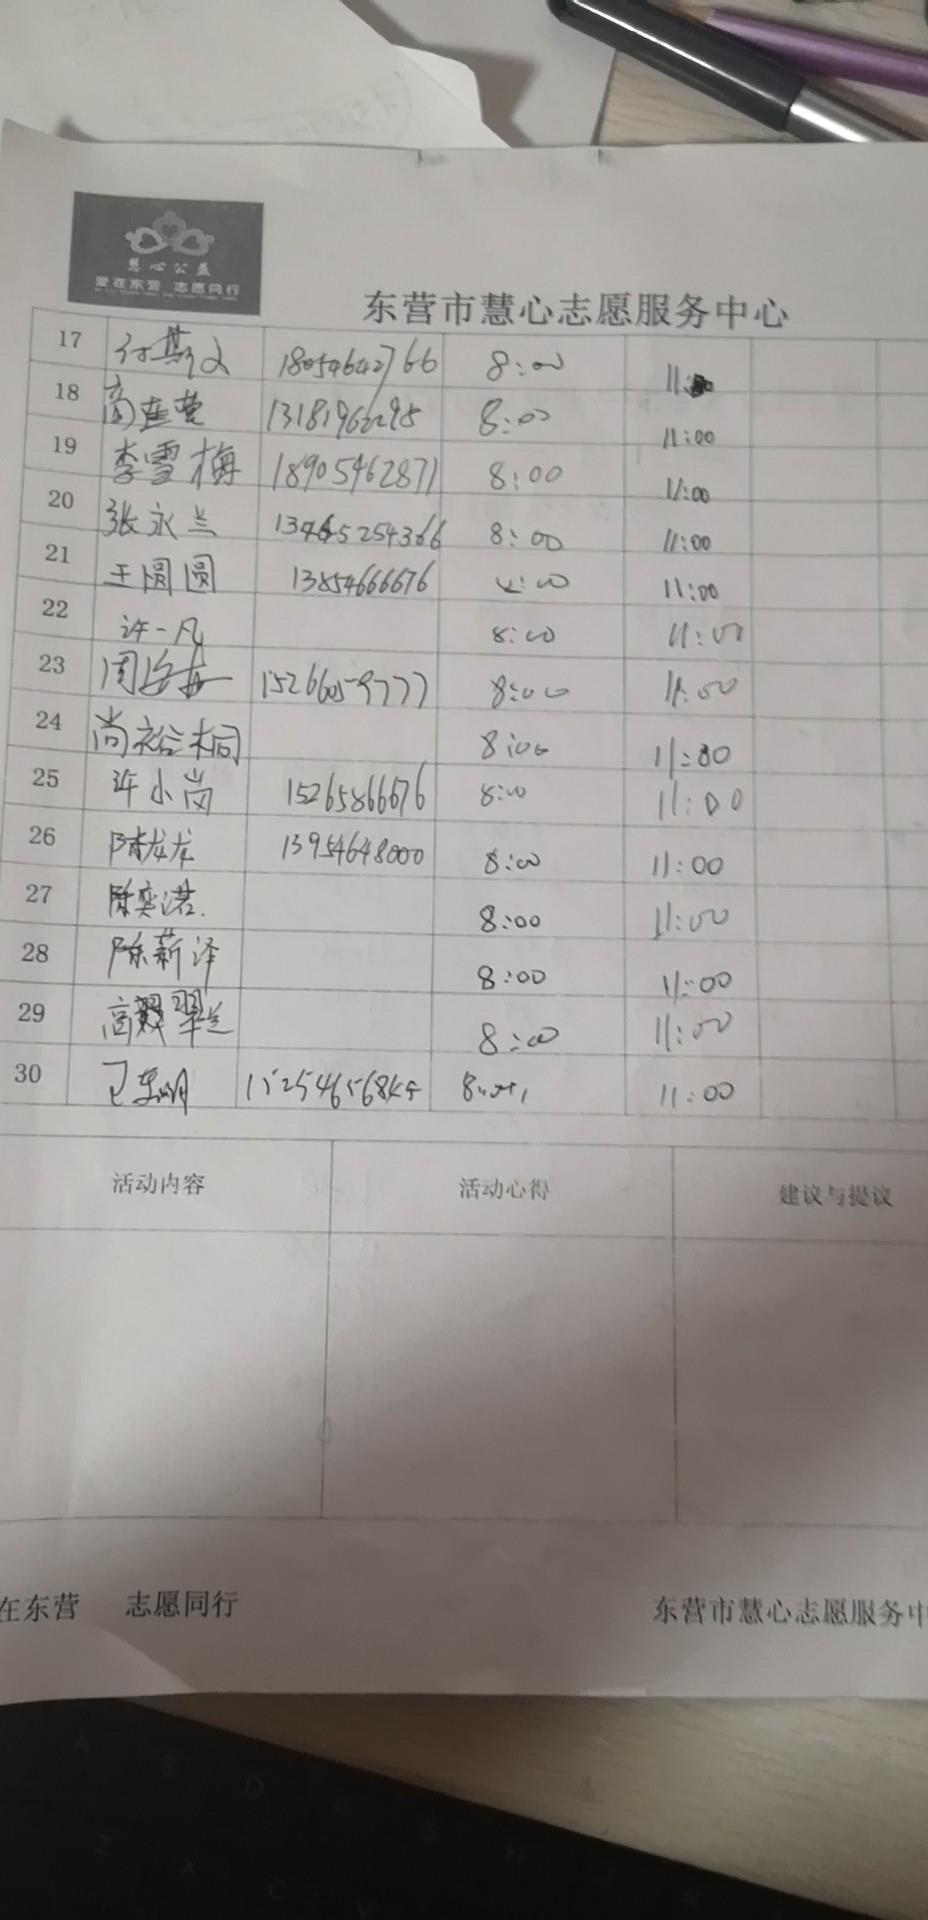 慧心公益
爱在东营 志愿同行
东营市慧心志愿服务中心
17 18054642766 8:00 11:
18 13181962298 8:00 11:00
19 李雪梅 18905462871 8:00 11:00
20 张永兰 8:00 11:00
21 王圆圆 13854666676 8:00 11:00
22 许一凡 8:00 11:00
23 周 8:00 11:00
24 尚裕桐 8:00 11:00
25 许小岗 15265866676 8:00 11:00
26 陈龙龙 13954648000 8:00 11:00
27 陈奕诺. 8:00 11:00
28 陈薪泽 8:00 11:00
29 高翠兰 8:00 11:00
30 11:00
活动内容 活动心得 建议与提议
在东营 志愿同行 东营市慧心志愿服务中